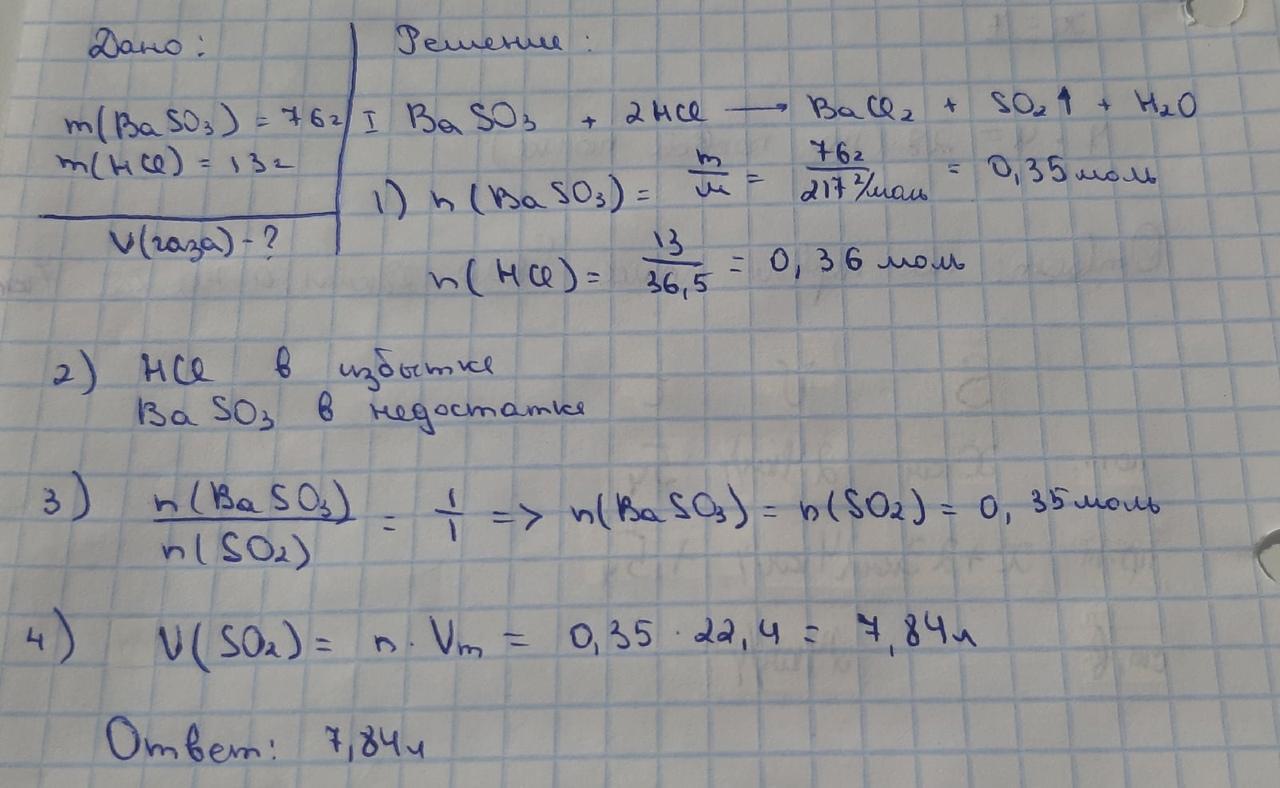 Дано:
Решение:
m(BaSO3) = 76г
m(HCl) = 13г
V(газа) - ?
I BaSO3 + 2HCl → BaCl2 + SO2↑ + H2O
1) n(BaSO3) = m/M = 76г/217г/моль = 0,35 моль
n(HCl) = 13/36,5 = 0,36 моль
2) HCl в избытке
BaSO3 в недостатке
3) n(BaSO3)/n(SO2) = 1/1 => n(BaSO3) = n(SO2) = 0,35 моль
4) V(SO2) = n · Vm = 0,35 · 22,4 = 7,84л
Ответ: 7,84л